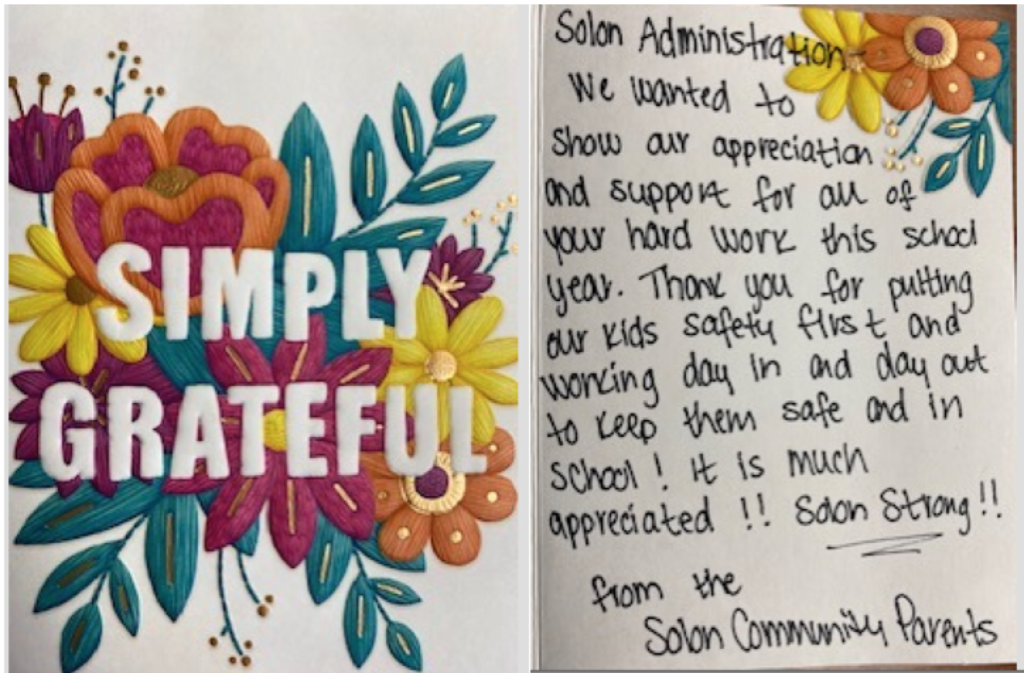 SIMPLY
GRATEFUL
Solon Administration-
We wanted to
show our appreciation
and support for all of
your hard work this school
year. Thank you for putting
our kids safety first and
working day in and day out
to keep them safe and in
school! It is much
appreciated!! Solon Strong!!
from the
Solon Community Parents